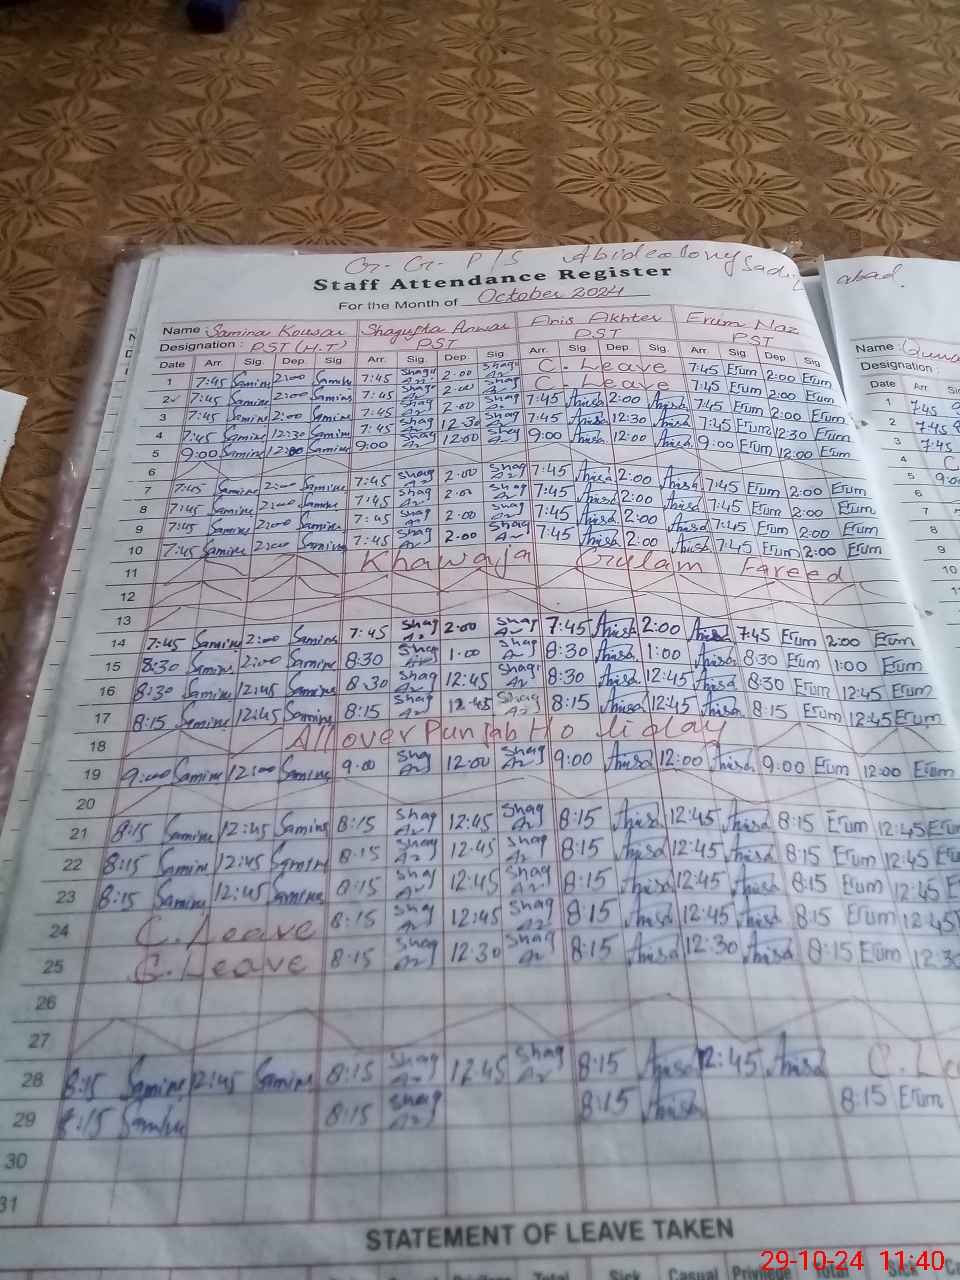 G. G. P/S Abidcolony Sadiq abad.
Staff Attendance Register
For the Month of October 2024
Name Samina Kousar Shagufta Anwar Anis Akhter Erum Naz
Designation : PST (H.T) PST PST PST
Name :
Designation :
Date Arr. Sig. Dep. Sig. Arr. Sig. Dep. Sig. Arr. Sig. Dep. Sig. Arr. Sig. Dep. Sig.
Date Arr
1 7:45 Samine 2:00 Samine 7:45 Shag Ar 2:00 Shag Ar C. Leave 7:45 Erum 2:00 Erum
2 7:45 Samine 2:00 Samine 7:45 Shag Ar 2:00 Shag Ar C. Leave 7:45 Erum 2:00 Erum
3 7:45 Samine 2:00 Samine 7:45 Shag Ar 2:00 Shag Ar 7:45 Anisa 2:00 Anisa 7:45 Erum 2:00 Erum
4 7:45 Samine 12:30 Samine 7:45 Shag Ar 12:30 Shag Ar 7:45 Anisa 12:30 Anisa 7:45 Erum 12:30 Erum
5 9:00 Samine 12:00 Samine 9:00 Shag Ar 12:00 Shag Ar 9:00 Anisa 12:00 Anisa 9:00 Erum 12:00 Erum
6
7 7:45 Samine 2:00 Samine 7:45 Shag Ar 2:00 Shag Ar 7:45 Anisa 2:00 Anisa 7:45 Erum 2:00 Erum
8 7:45 Samine 2:00 Samine 7:45 Shag Ar 2:00 Shag Ar 7:45 Anisa 2:00 Anisa 7:45 Erum 2:00 Erum
9 7:45 Samine 2:00 Samine 7:45 Shag Ar 2:00 Shag Ar 7:45 Anisa 2:00 Anisa 7:45 Erum 2:00 Erum
10 7:45 Samine 2:00 Samine 7:45 Shag Ar 2:00 Shag Ar 7:45 Anisa 2:00 Anisa 7:45 Erum 2:00 Erum
11 Khawaja Gulam Fareed
12
13
14 7:45 Samine 2:00 Samine 7:45 Shag Ar 2:00 Shag Ar 7:45 Anisa 2:00 Anisa 7:45 Erum 2:00 Erum
15 8:30 Samine 2:00 Samine 8:30 Shag Ar 1:00 Shag Ar 8:30 Anisa 1:00 Anisa 8:30 Erum 1:00 Erum
16 8:30 Samine 12:45 Samine 8:30 Shag Ar 12:45 Shag Ar 8:30 Anisa 12:45 Anisa 8:30 Erum 12:45 Erum
17 8:15 Samine 12:45 Samine 8:15 Shag Ar 12:45 Shag Ar 8:15 Anisa 12:45 Anisa 8:15 Erum 12:45 Erum
18 All over Punjab Holiday
19 9:00 Samine 12:00 Samine 9:00 Shag Ar 12:00 Shag Ar 9:00 Anisa 12:00 Anisa 9:00 Erum 12:00 Erum
20
21 8:15 Samine 12:45 Samine 8:15 Shag Ar 12:45 Shag Ar 8:15 Anisa 12:45 Anisa 8:15 Erum 12:45 Erum
22 8:15 Samine 12:45 Samine 8:15 Shag Ar 12:45 Shag Ar 8:15 Anisa 12:45 Anisa 8:15 Erum 12:45
23 8:15 Samine 12:45 Samine 8:15 Shag Ar 12:45 Shag Ar 8:15 Anisa 12:45 Anisa 8:15 Erum 12:45
24 C. Leave 8:15 Shag Ar 12:45 Shag Ar 8:15 Anisa 12:45 Anisa 8:15 Erum 12:45
25 C. Leave 8:15 Shag Ar 12:30 Shag Ar 8:15 Anisa 12:30 Anisa 8:15 Erum 12:30
26
27
28 8:15 Samine 12:45 Samine 8:15 Shag Ar 12:45 Shag Ar 8:15 Anisa 12:45 Anisa C. Le
29 8:15 Samine 8:15 Shag Ar 8:15 Anisa 8:15 Erum
30
31
1 7:45
2 7:45
3 7:45
4 C
5 9:0
6
7
8
9
10
STATEMENT OF LEAVE TAKEN
Sick Casual Privilege Total Sick
29-10-24 11:40